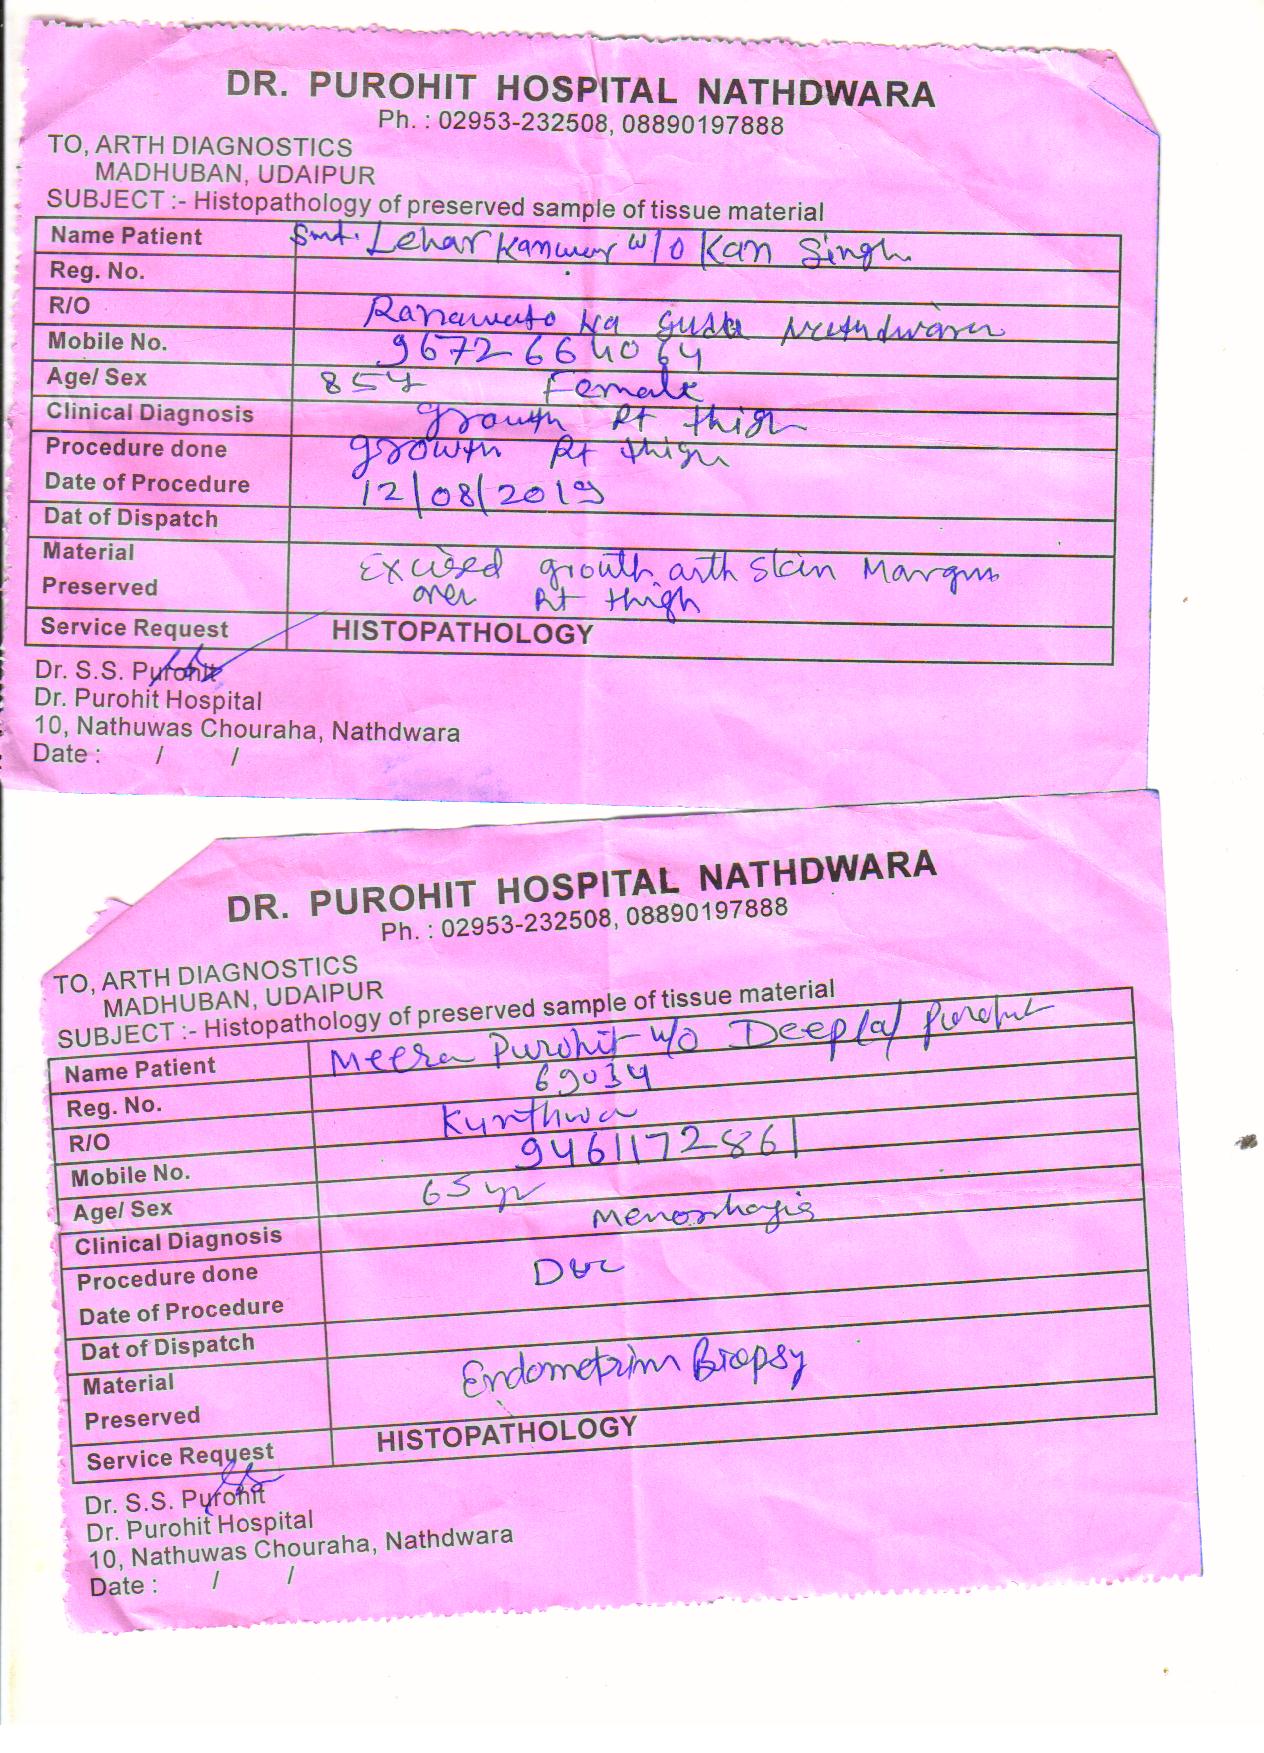 DR. PUROHIT HOSPITAL NATHDWARA
Ph. : 02953-232508, 08890197888
TO, ARTH DIAGNOSTICS
MADHUBAN, UDAIPUR
SUBJECT :- Histopathology of preserved sample of tissue material
Name Patient Smt. Lehar Kanwer w/o Kan Singh
Reg. No.
R/O Ranawato Ka Guda Nathdwara
Mobile No. 9672664064
Age/ Sex 85y Female
Clinical Diagnosis growth Rt thigh
Procedure done growth Rt thigh
Date of Procedure 12/08/2019
Dat of Dispatch
Material Excised growth skin Margins
Preserved over Rt thigh
Service Request HISTOPATHOLOGY
Dr. S.S. Purohit
Dr. Purohit Hospital
10, Nathuwas Chouraha, Nathdwara
Date : / /
DR. PUROHIT HOSPITAL NATHDWARA
Ph. : 02953-232508, 08890197888
TO, ARTH DIAGNOSTICS
MADHUBAN, UDAIPUR
SUBJECT :- Histopathology of preserved sample of tissue material
Name Patient Meera Purohit w/o Purohit
Reg. No. 69034
R/O Kunthwa
Mobile No. 9461172861
Age/ Sex 65 yr
Clinical Diagnosis Menorrhagia
Procedure done D&C
Date of Procedure
Dat of Dispatch
Material Endometrim Biopsy
Preserved
Service Request HISTOPATHOLOGY
Dr. S.S. Purohit
Dr. Purohit Hospital
10, Nathuwas Chouraha, Nathdwara
Date : / /